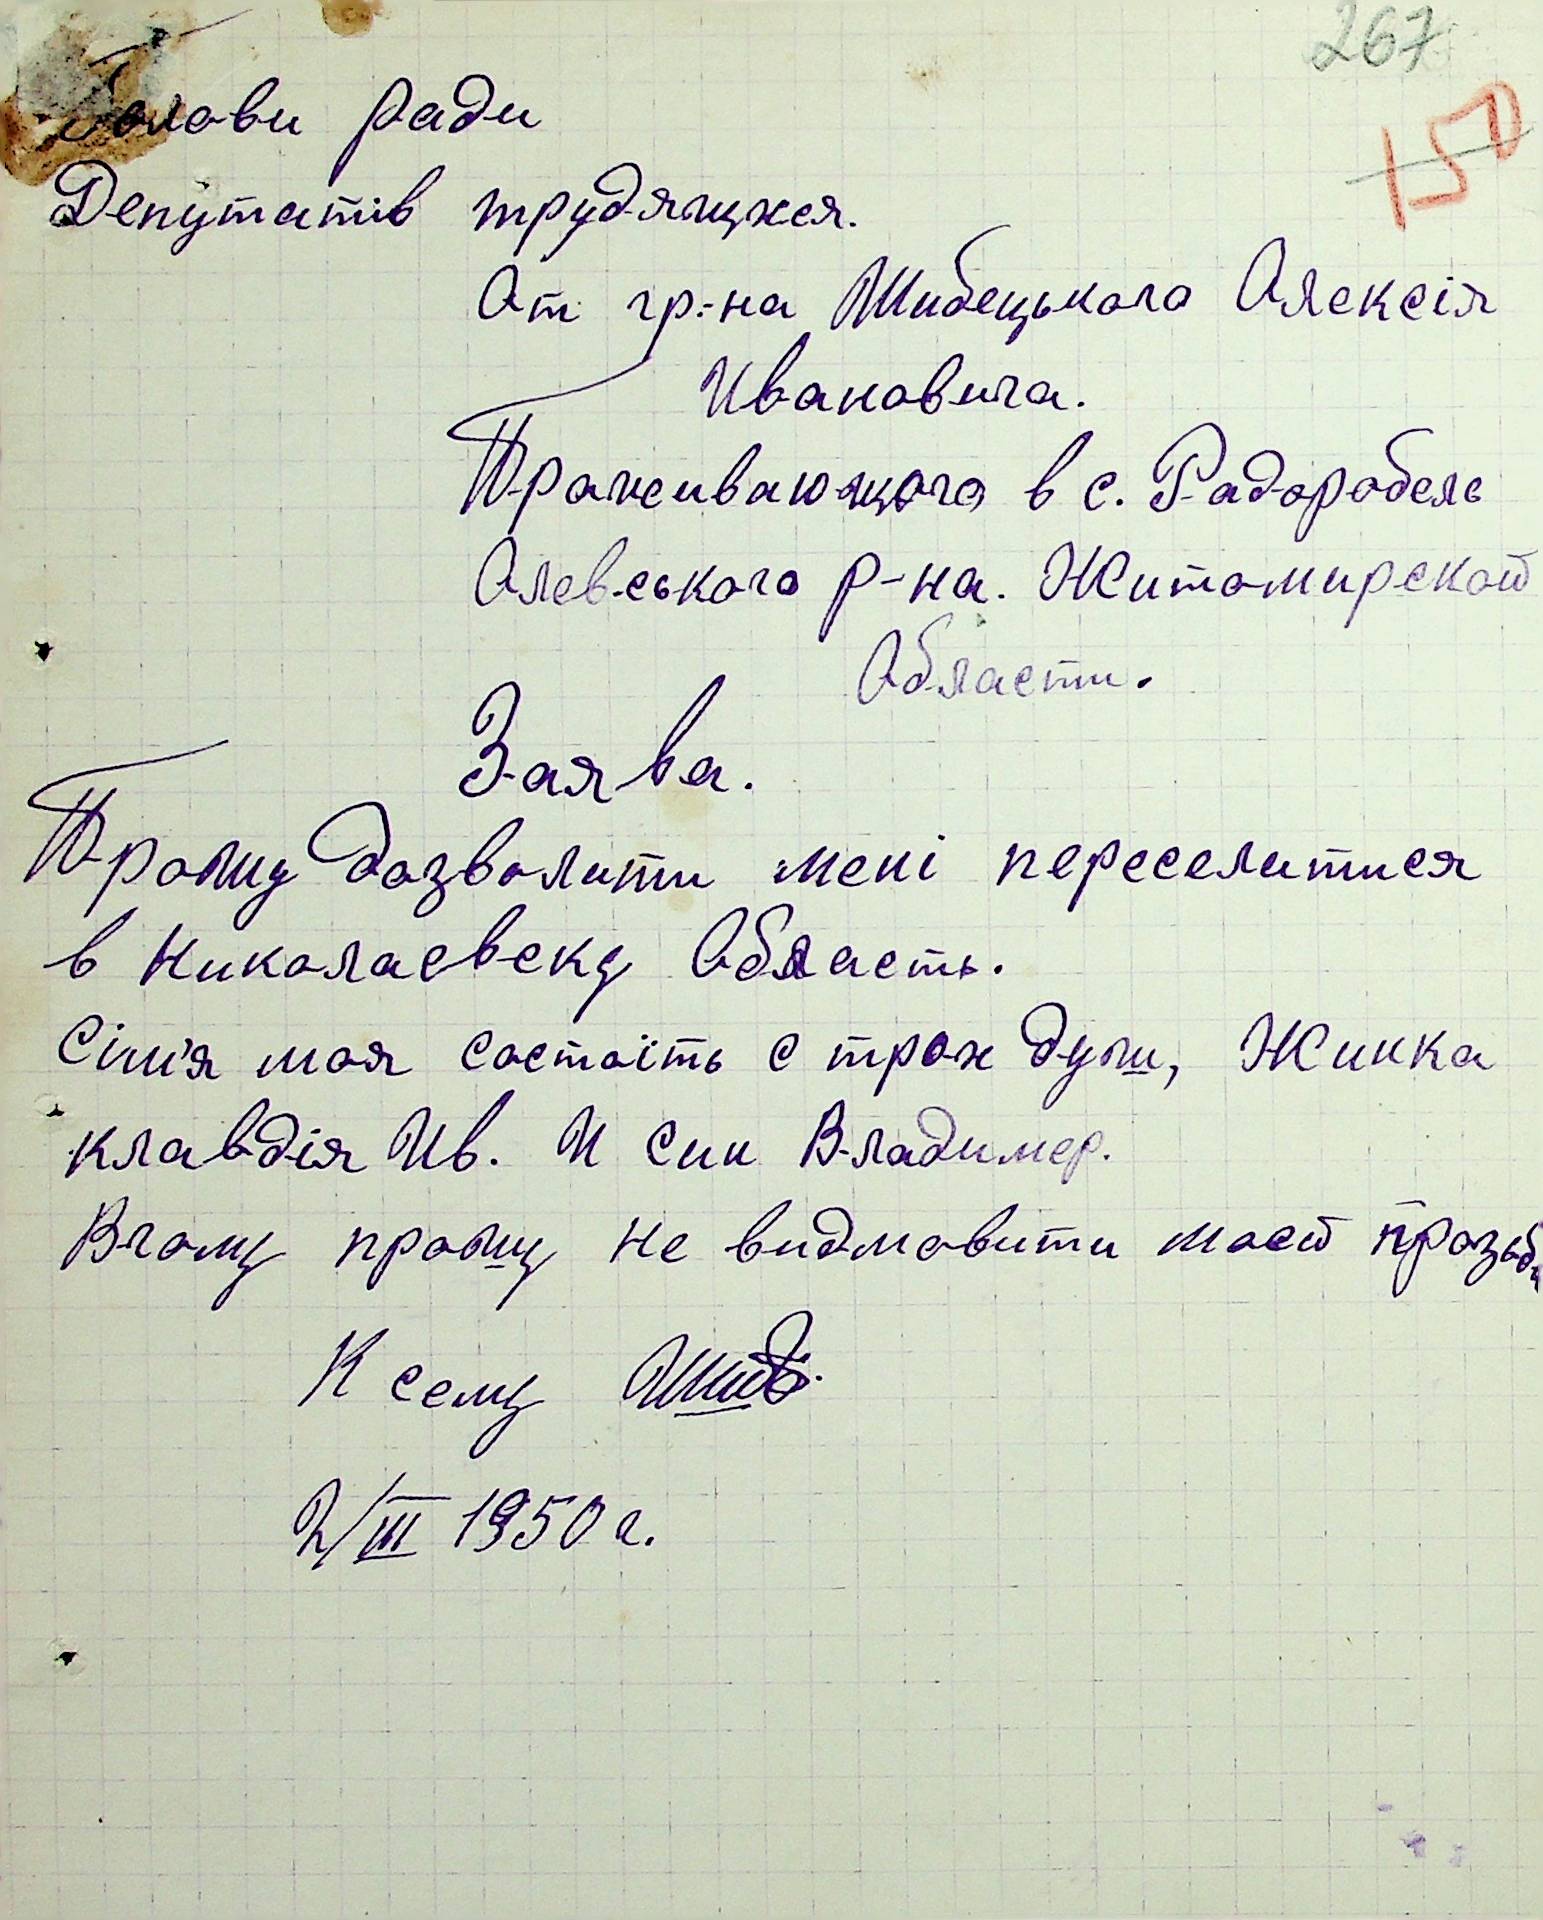 267
150
Голови ради
Депутатів трудящихся.
От гр.-на Шибецького Алексія
Ивановича.
Проживающого в с. Радоробель
Олевського р-на. Житомирской
Области.
Заява.
Прошу дозволити мені переселитися
в Николаевску Область.
Сім'я моя состоїть с трох душ, Жинка
клавдія Ив. И син Владимер.
Вчому прошу не видмовити моей прозьби
К сему Шиб.
2/III 1950 г.